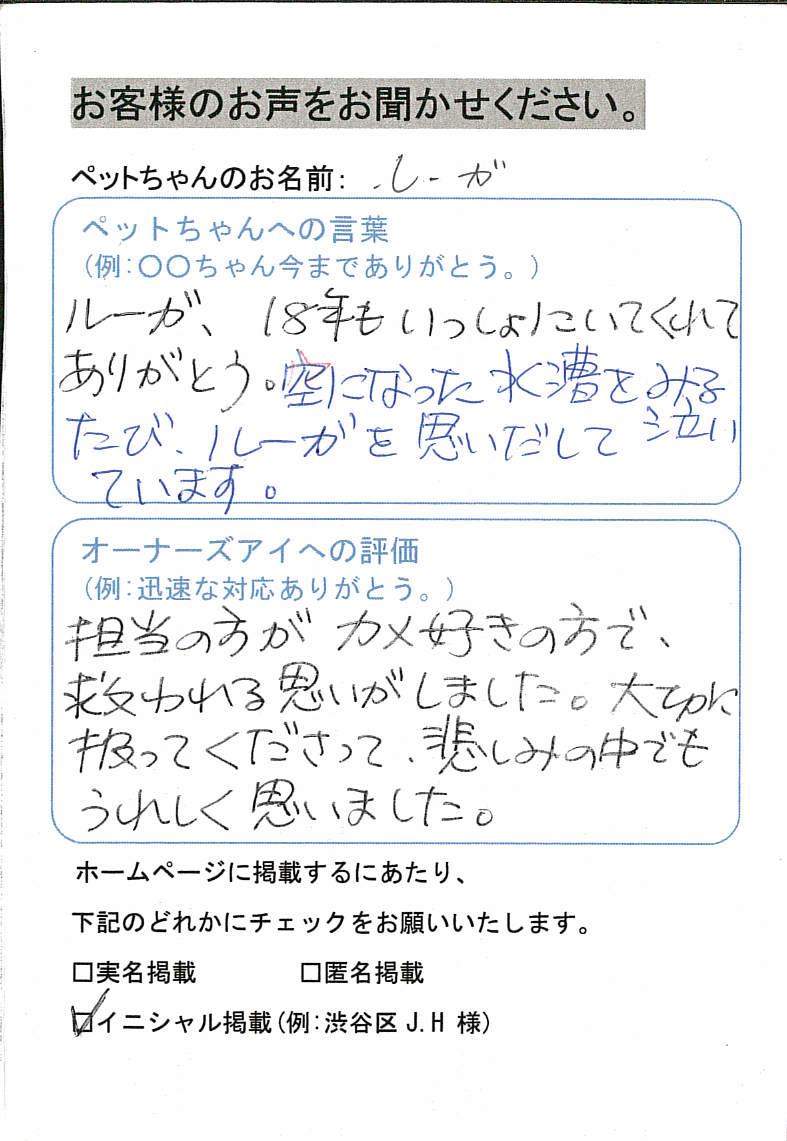 お客様のお声をお聞かせください。
ペットちゃんのお名前: ルーガ
ペットちゃんへの言葉
(例:〇〇ちゃん今までありがとう。)
ルーガ、18年もいっしょにいてくれて
ありがとう。空になった水漕をみる
たび、ルーガを思いだして泣い
ています。
オーナーズアイへの評価
(例:迅速な対応ありがとう。)
担当の方がカメ好きの方で、
救われる思いがしました。大切に
扱ってくださって、悲しみの中でも
うれしく思いました。
ホームページに掲載するにあたり、
下記のどれかにチェックをお願いいたします。
□実名掲載 □匿名掲載
☑イニシャル掲載(例:渋谷区 J.H 様)